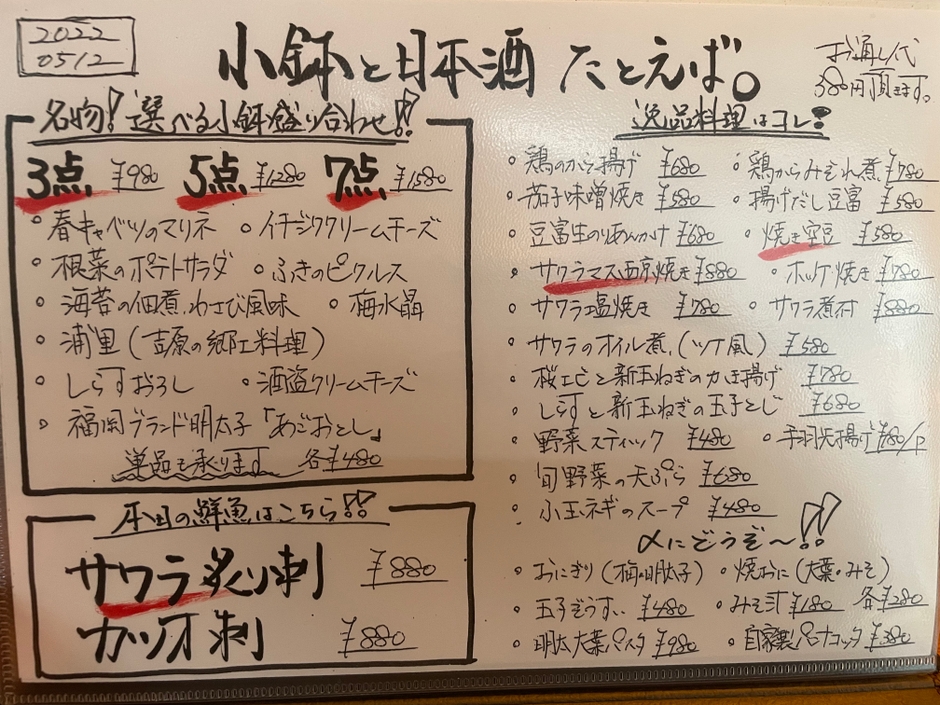 2022
0512
小鉢と日本酒 たとえば。
お通し代
380円頂きます。
名物!選べる小鉢盛り合わせ!!
3点 ¥980 5点 ¥1280 7点 ¥1580
・春キャベツのマリネ ・イチジククリームチーズ
・根菜のポテトサラダ ・ふきのピクルス
・海苔の佃煮、わさび風味 ・梅水晶
・浦里(吉原の郷土料理)
・しらすおろし ・酒盗クリームチーズ
・福岡ブランド明太子「あごおとし」
単品も承ります 各¥480
本日の鮮魚はこちら!!
サワラ炙り刺 ¥880
カツオ刺 ¥880
逸品料理はコレ!
・鶏のから揚げ ¥680 ・鶏からみぞれ煮 ¥780
・茄子味噌焼き ¥580 ・揚げだし豆富 ¥580
・豆富生のりあんかけ ¥680 ・焼き空豆 ¥580
・サクラマス西京焼き ¥880 ・ホッケ焼き ¥780
・サワラ塩焼き ¥780 ・サワラ煮付 ¥880
・サワラのオイル煮、(ツナ風) ¥580
・桜エビと新玉ねぎのかき揚げ ¥780
・しらすと新玉ねぎの玉子とじ ¥680
・野菜スティック ¥480 ・手羽先揚げ ¥180/P
・旬野菜の天ぷら ¥680
・小玉ネギのスープ ¥480
〆にどうぞ〜!!
・おにぎり(梅・明太子) ・焼おに(大葉・みそ)
・玉子ぞうすい ¥480 ・みそ汁 ¥180 各¥280
・明太大葉パスタ ¥980 ・自家製パンナコッタ ¥380